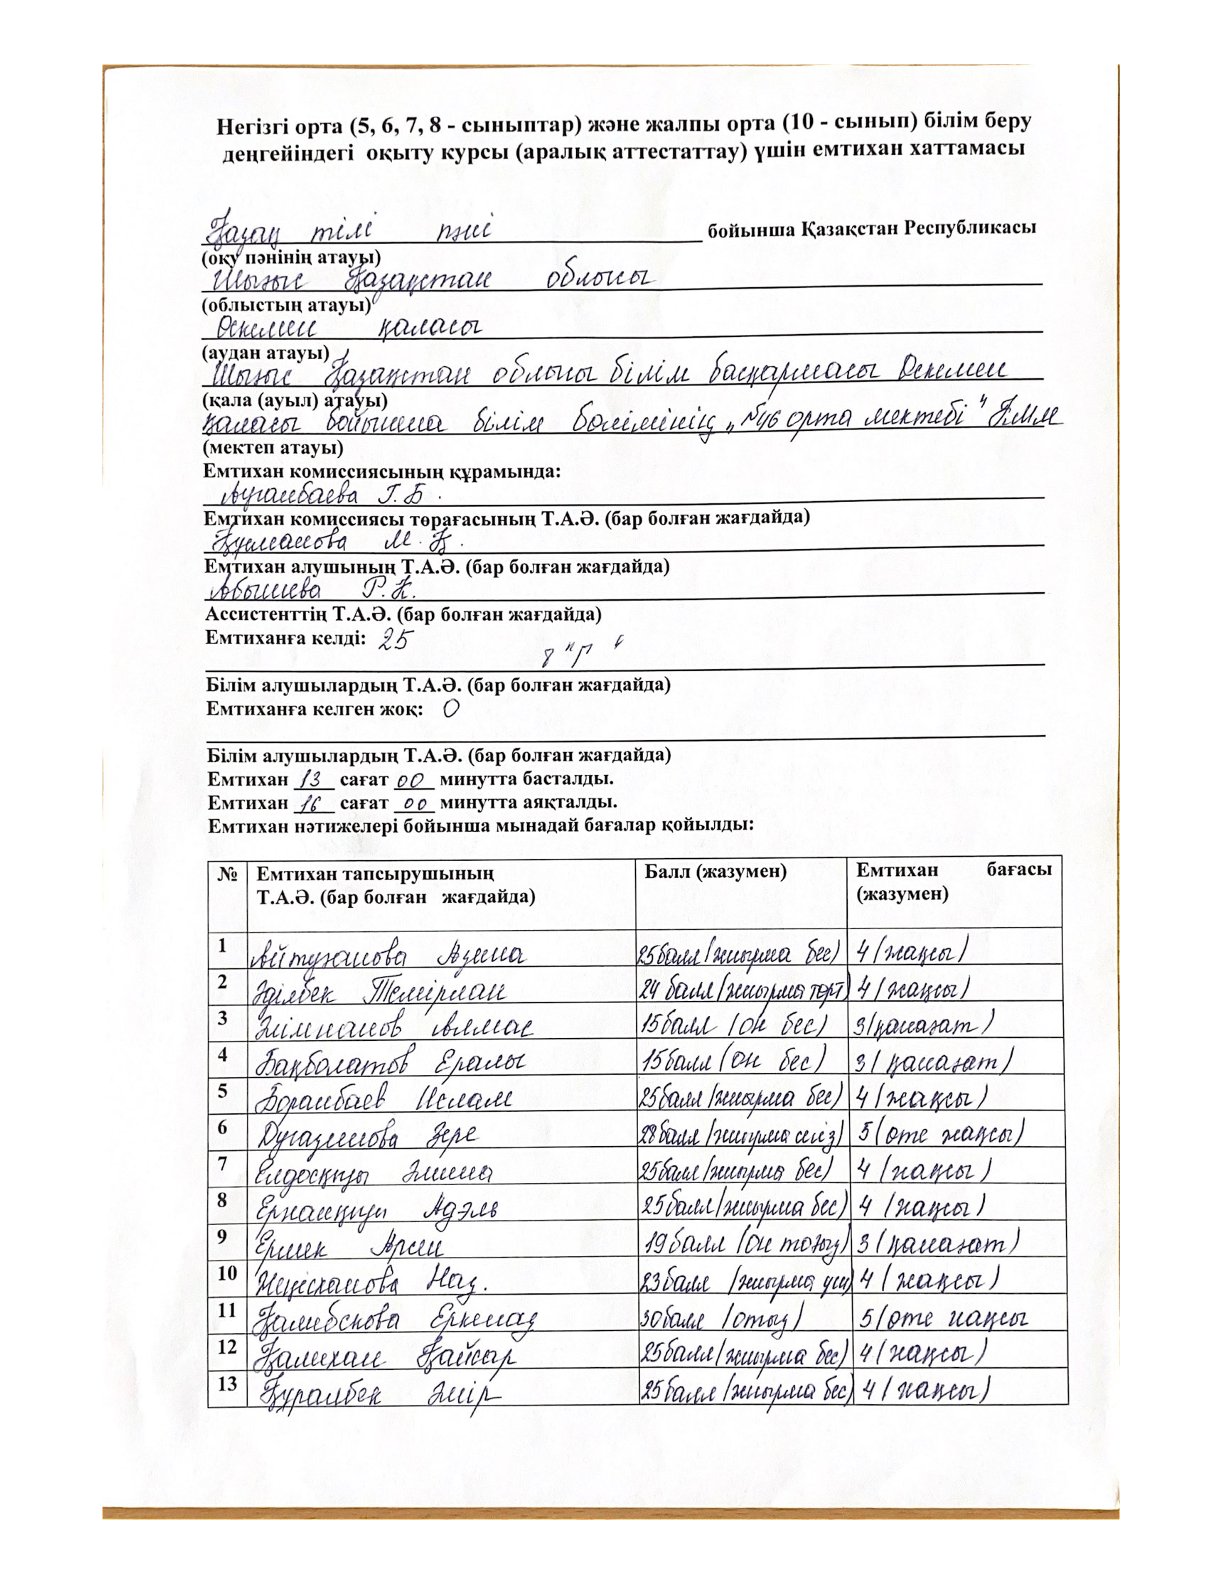 Негізгі орта (5, 6, 7, 8 - сыныптар) және жалпы орта (10 - сынып) білім беру
деңгейіндегі оқыту курсы (аралық аттестаттау) үшін емтихан хаттамасы
Қазақ тілі пәні бойынша Қазақстан Республикасы
(оқу пәнінің атауы)
Шығыс Қазақстан облысы
(облыстың атауы)
Өскемен қаласы
(аудан атауы)
Шығыс Қазақстан облысы білім басқармасы Өскемен
(қала (ауыл) атауы)
қаласы бойынша білім бөлімінің „№46 орта мектебі" КММ
(мектеп атауы)
Емтихан комиссиясының құрамында:
Ауганбаева Г.Б.
Емтихан комиссиясы төрағасының Т.А.Ә. (бар болған жағдайда)
Құсманова М.Қ.
Емтихан алушының Т.А.Ә. (бар болған жағдайда)
Абышева Р.К.
Ассистенттің Т.А.Ә. (бар болған жағдайда)
Емтиханға келді: 25
Білім алушылардың Т.А.Ә. (бар болған жағдайда)
Емтиханға келген жоқ: 0
Білім алушылардың Т.А.Ә. (бар болған жағдайда)
Емтихан 13 сағат 00 минутта басталды.
Емтихан 16 сағат 00 минутта аяқталды.
Емтихан нәтижелері бойынша мынадай бағалар қойылды:
№ Емтихан тапсырушының Балл (жазумен) Емтихан бағасы
Т.А.Ә. (бар болған жағдайда) (жазумен)
1 Айтуғанова Азема 25 балл (жиырма бес) 4 (жақсы)
2 Әділбек Темірлан 24 балл (жиырма төрт) 4 (жақсы)
3 Әлімханов Алмас 15 балл (он бес) 3 (қанағат)
4 Бақболатов Ералы 15 балл (он бес) 3 (қанағат)
5 Боранбаев Ислам 25 балл (жиырма бес) 4 (жақсы)
6 Дугазинова Зере 28 балл (жиырма сегіз) 5 (өте жақсы)
7 Елдосқызы Әмина 25 балл (жиырма бес) 4 (жақсы)
8 Ернанқызы Адэль 25 балл (жиырма бес) 4 (жақсы)
9 Ермек Арсен 19 балл (он тоғыз) 3 (қанағат)
10 Жеңісханова Наз. 23 балл (жиырма үш) 4 (жақсы)
11 Қалибекова Еркеназ 30 балл (отыз) 5 (өте жақсы
12 Қалихан Қайсар 25 балл (жиырма бес) 4 (жақсы)
13 Құралбек Әмір 25 балл (жиырма бес) 4 (жақсы)